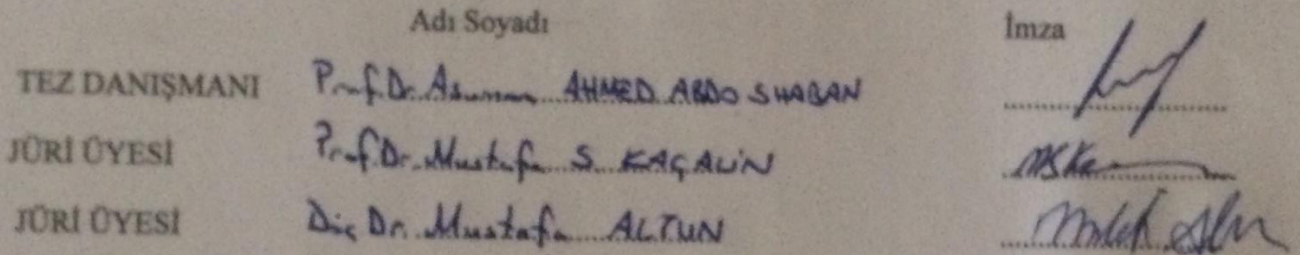 Adı Soyadı İmza
TEZ DANIŞMANI Prof. Dr. Asuman AHMED ABDO SHABAN
JÜRİ ÜYESİ Prof. Dr. Mustafa S. KAÇALİN
JÜRİ ÜYESİ Doç Dr. Mustafa ALTUN